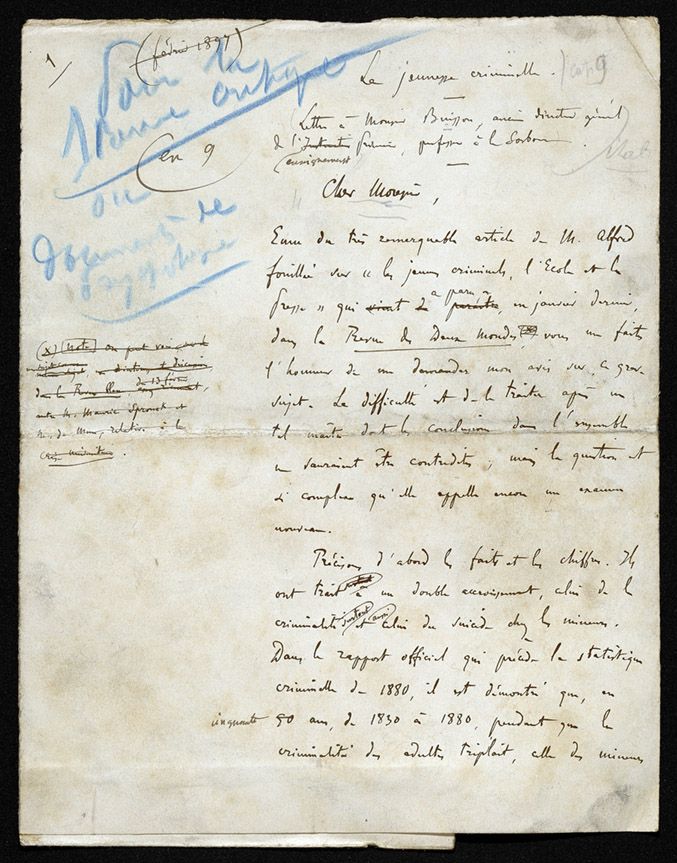 1/
(février 1897)
Pour la
Revue critique
ou
Documents de
(en 9
La jeunesse criminelle.
Lettre à Monsieur Buisson, ancien directeur général
de l'Instruction primaire, professeur à la Sorbonne.
enseignement
Cher Monsieur,
Emu du très remarquable article de M. Alfred
Fouillée sur "les jeunes criminels, l'Ecole et la
Presse" qui vient de paraître, a paru en janvier dernier,
dans la Revue des Deux Mondes (x) vous me faites
l'honneur de me demander mon avis sur ce grave
sujet. La difficulté est de le traiter après un
tel maître dont les conclusions dans l'ensemble
ne sauraient être contredites ; mais la question est
si complexe qu'elle appelle encore un examen
nouveau.
(x) Note On peut voir
dans la Revue Bleue du 13 février
entre M. Maurice Spronck et
M. de Mun, relative à la
Précisons d'abord les faits et les chiffres. Ils
ont trait à un double accroissement, celui de la
criminalité surtout et aussi celui du suicide chez les mineurs.
Dans le rapport officiel qui précède la statistique
criminelle de 1880, il est démontré que, en
cinquante 50 ans, de 1830 à 1880, pendant que la
criminalité des adultes triplait, celle des mineurs